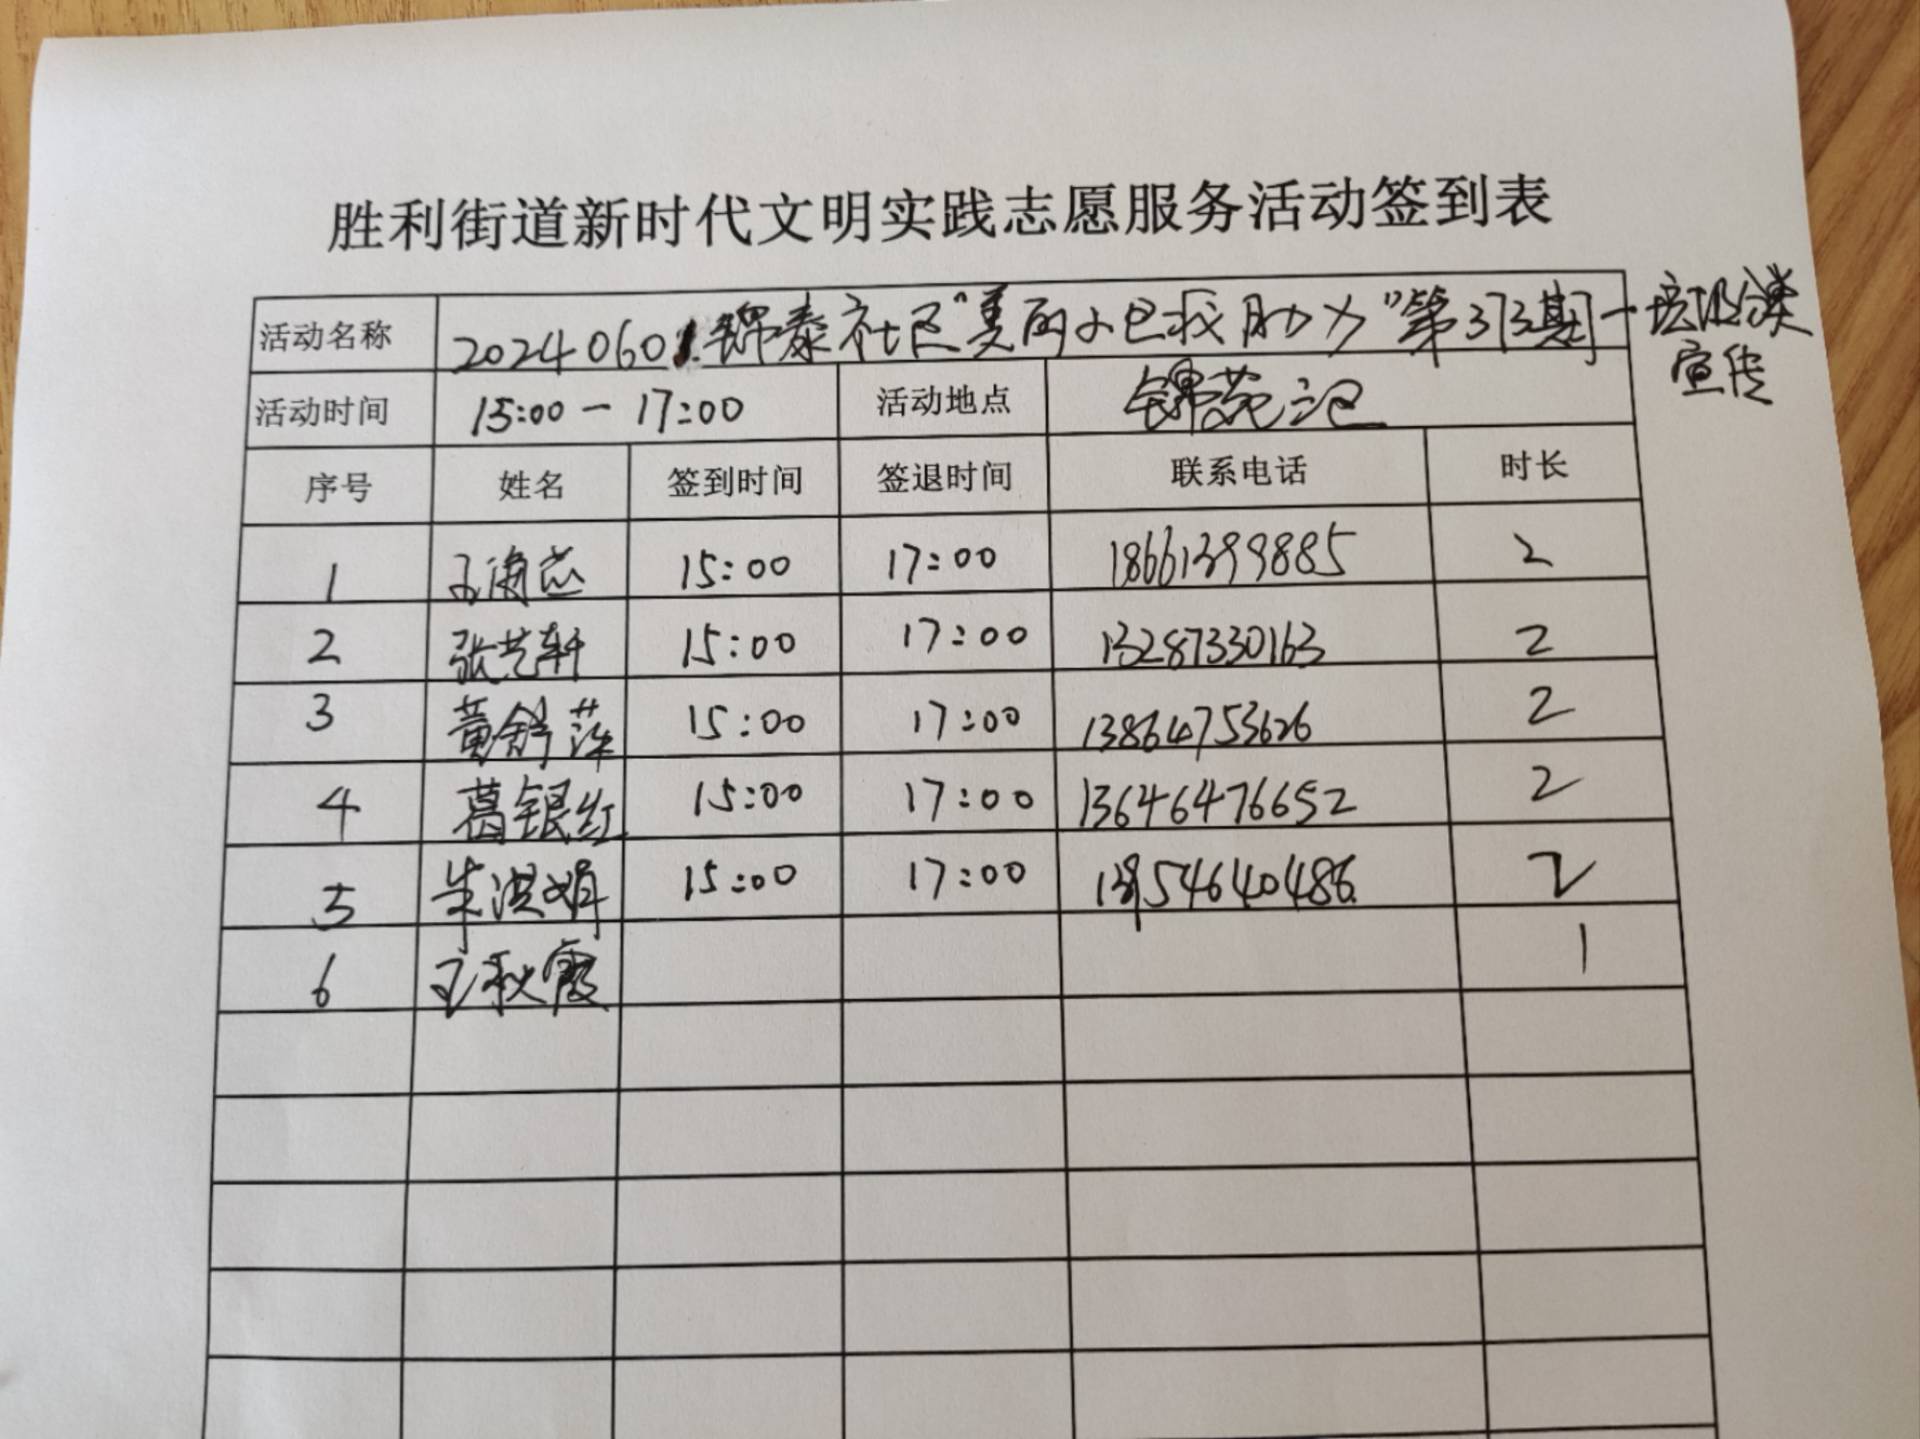 胜利街道新时代文明实践志愿服务活动签到表
活动名称 20240601锦泰社区"美丽小区我助力"第373期-垃圾分类
宣传
活动时间 15:00-17:00 活动地点 锦苑三区
序号 姓名 签到时间 签退时间 联系电话 时长
1 15:00 17:00 18661399885 2
2 张艺轩 15:00 17:00 13287330163 2
3 黄舒萍 15:00 17:00 13864753626 2
4 葛银红 15:00 17:00 13646476652 2
5 朱洪娟 15:00 17:00 13954640486 2
6 王秋霞 1